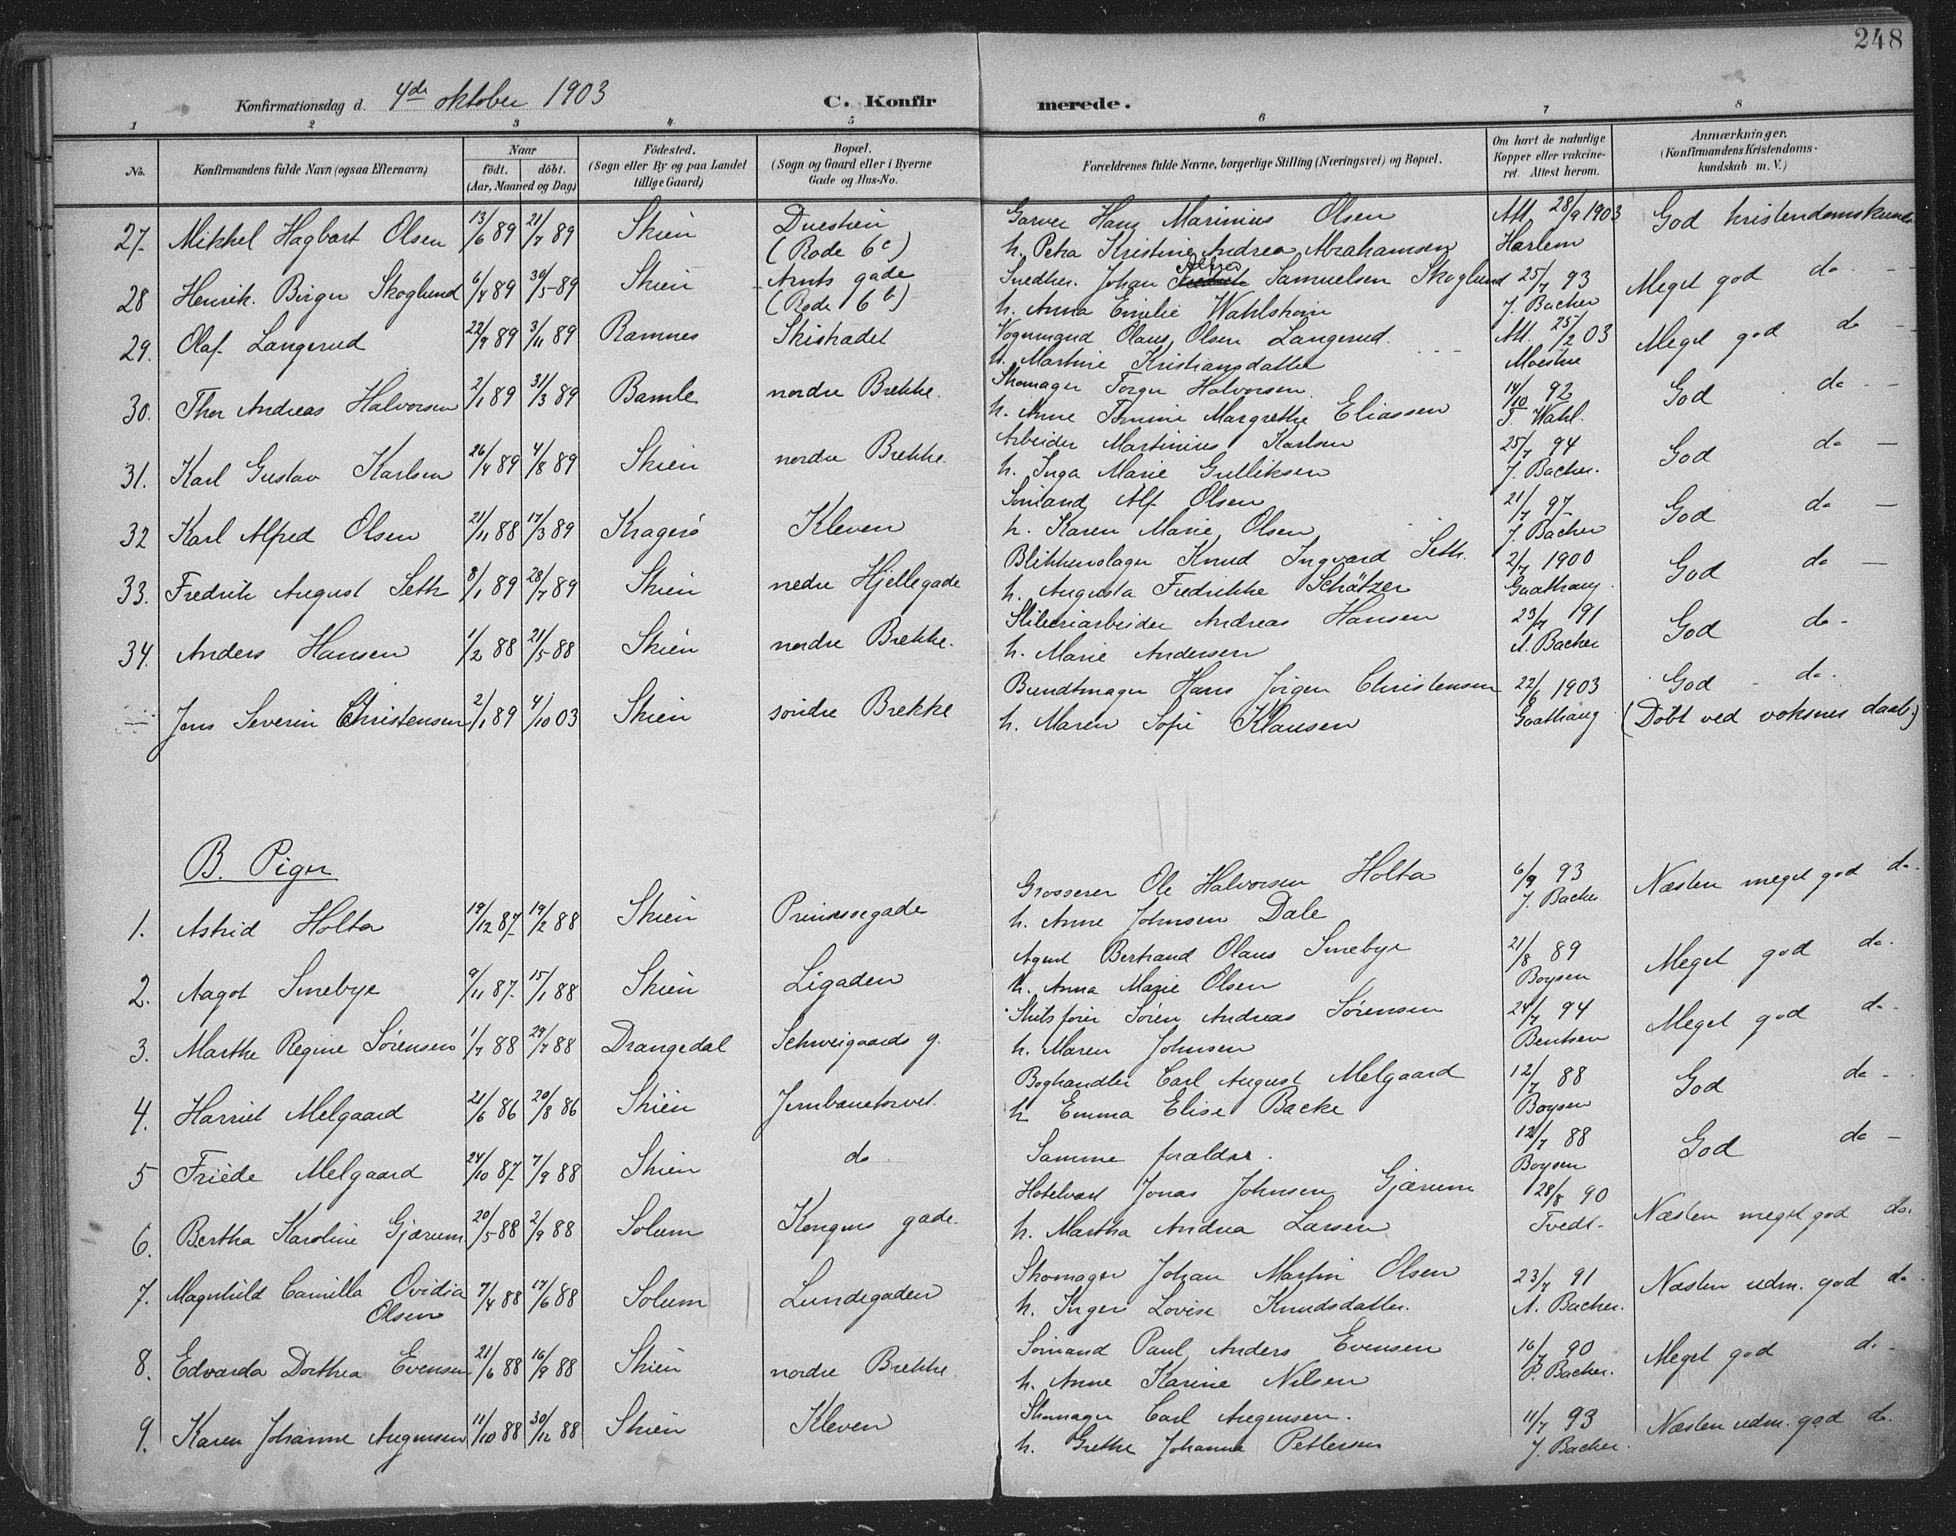 248
Konfirmationsdag d. 4de oktober 1903 C. Konfirmerede.
1 2 3 4 5 6 7 8
No. Konfirmandens fulde Navn (ogsaa Efternavn) Naar födt. döbt. (Aar, Maaned og Dag) Födested. (Sogn eller By og paa Landet tillige Gaard) Bopæl. (Sogn og Gaard eller i Byerne Gade og Hus-No. Forældrenes fulde Navne, borgerlige Stilling (Næringsvei) og Bopæl. Om havt de naturlige Kopper eller vakcineret. Attest herom. Anmærkninger. (Konfirmandens Kristendomskundskab m. V.)
27. Mikkel Hagbart Olsen 13/6 89 21/7 89 Skien Duestien (Rode 6c) Garver Hans Marinius Olsen Att. 28/9 1903 God kristendomskunds
h. Petra Kristine Andrea Abrahamsen Harlem
28 Henrik Birger Skoglund 6/4 89 30/5 89 Skien Arnts gade (Rode 6b) Snedker Johan Alfred Samuelsen Skoglund 25/7 93 Meget god do -
h. Anna Emilie Wahlstrøm J. Backer
29. Olaf Langerud 22/9 89 3/11 89 Ramnes Skistadet Vognmand Olaus Olsen Langerud. Att. 25/2 03 Meget god do -
h. Martine Kristiansdatter Moestue
30. Thor Andreas Halvorsen 2/1 89 31/3 89 Bamle nordre Brekke. Skomager Torger Halvorsen. 14/10 92 God do -
h. Anne Tomine Margrethe Eliassen T. Wahl.
31. Karl Gustav Karlsen 26/4 89 4/8 89 Skien nordre Brekke. Arbeider Martinius Karlsen 25/7 94 God do -
h. Inga Marie Gulliksen J. Backer.
32 Karl Alfred Olsen 21/11 88 17/3 89 Kragerö Kleven Sömand Alf Olsen 21/7 97 God do -
h. Karen Marie Olsen J. Backer
33. Fredrik August Seth 8/1 89 28/7 89 Skien nedre Hjellegade Blikkenslager Knud Ingvard Seth. 2/7 1900 God do -
h. Augusta Fredrikke Schätzer Gaathaug.
34. Anders Hansen 1/2 88 21/5 88 Skien nordre Brekke. Sliberiarbeider Andreas Hansen 23/7 191 God do -
h. Marie Andersen A. Backer
Jens Severin Christensen 2/1 89 4/10 03 Skien söndre Brekke Bundtmager Hans Jörgen Christensen 22/6 1903 God - do.
h. Maren Sofie Klausen Gaathaug (Döbt ved voksnes daab.)
B. Piger
1. Astrid Holta 19/12 87 19/2 88 Skien Prinsessegade Grosserer Ole Halvorsen Holta 6/9 93 Næsten meget god do.
h. Anne Johnsen Dale J. Backer
2. Aagot Smebye 9/11 87 15/1 88 Skien Ligaden Agent Bertrand Olaus Smebye 21/8 89 Meget god do.
h. Anna Marie Olsen Boysen
3. Marthe Regine Sørensen 1/7 88 29/7 88 Drangedal Schweigaards g. Skibsfører Søren Andreas Sørensen 24/7 94 Meget god do.
h. Maren Johnsen Bentsen
4. Harriet Melgaard 21/6 86 20/8 86 Skien Jernbanetorvet. Boghandler Carl August Melgaard 12/7 88 God do -
h Emma Elise Backe Boysen
5 Friede Melgaard 24/10 87 7/9 88 Skien do Samme forældre. 12/7 88 God do -
Boysen
6. Bertha Karoline Gjærum 20/5 88 2/9 88 Solum Kongens gade. Hotelvært Jonas Johnsen Gjærum 28/8 90 Næsten meget god do.
h. Martha Andrea Larsen Tvedt.
7. Magnhild Camilla Ovidia Olsen 7/4 88 17/6 88 Solum Lundegaden Skomager Johan Martin Olsen 23/7 91 Næsten udm. god do
h. Inger Lovise Knudsdatter. A. Backer.
8. Edvarda Dorthea Evensen 21/6 88 16/9 88 Skien nordre Brekke Sömand Paul Anders Evensen 16/7 90 Meget god do -
h. Anne Karine Nilsen P. Backer.
9. Karen Johanne Augensen 11/10 88 30/12 88 Skien Kleven Skomager Carl Augensen. 11/7 93 Næsten udm. god do.
h. Grethe Johanne Pettersen J. Backer.